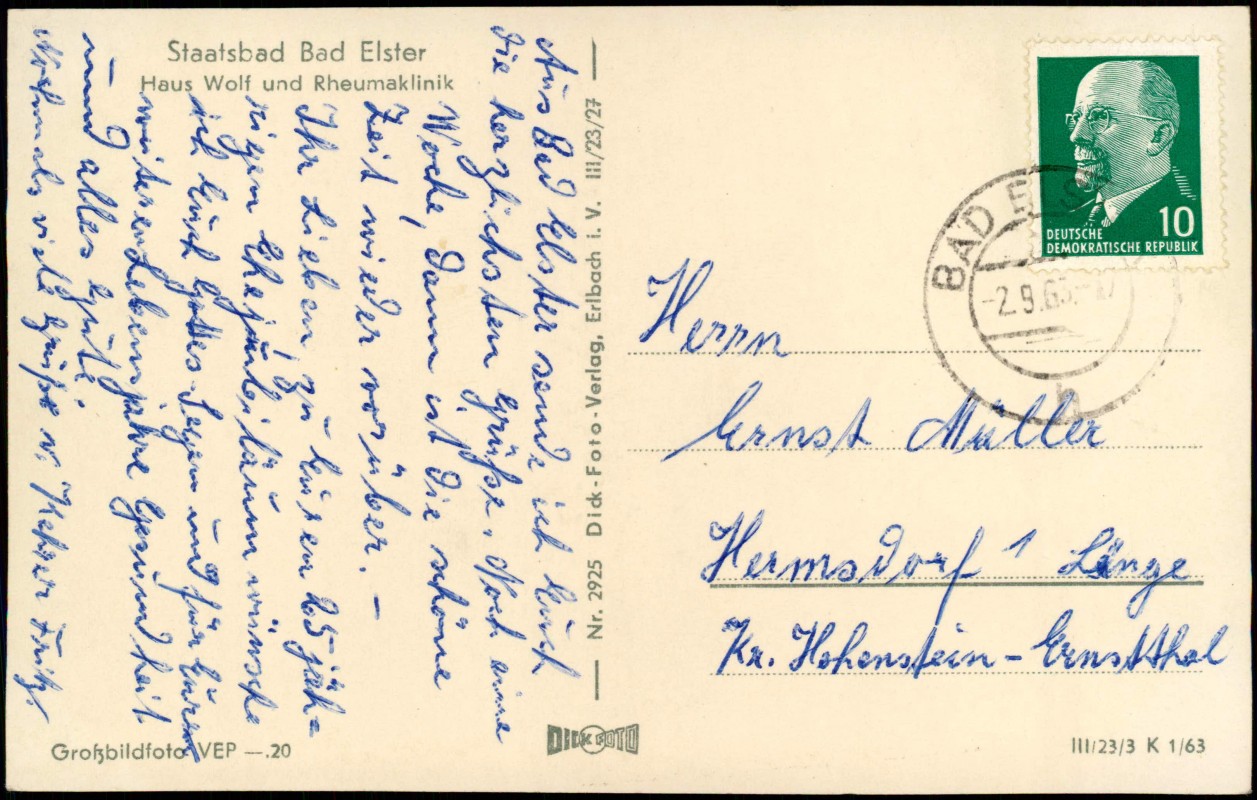 Staatsbad Bad Elster
Haus Wolf und Rheumaklinik
Aus Bad Elster sende ich Euch
die herzlichsten Grüße. Noch eine
Woche, dann ist die schöne
Zeit wieder vorüber. –
Ihr Lieben, zu Euren 25 jäh-
rigem Ehejubiläum wünsche
ich Euch Gottes Segen und für Euren
weiteren Lebensjahre Gesundheit
und alles Gute.
Nochmals viele Grüße v. Fritz.
Großbildfoto VEP —.20
Nr. 2925 Dick-Foto-Verlag, Erlbach i. V. III/23/27
DICK FOTO
10
DEUTSCHE
DEMOKRATISCHE REPUBLIK
BAD ELS
-2.9.63.-17
h
Herrn
Ernst Müller
Hermsdorf 1 Länge
Kr. Hohenstein-Ernstthal
III/23/3 K 1/63